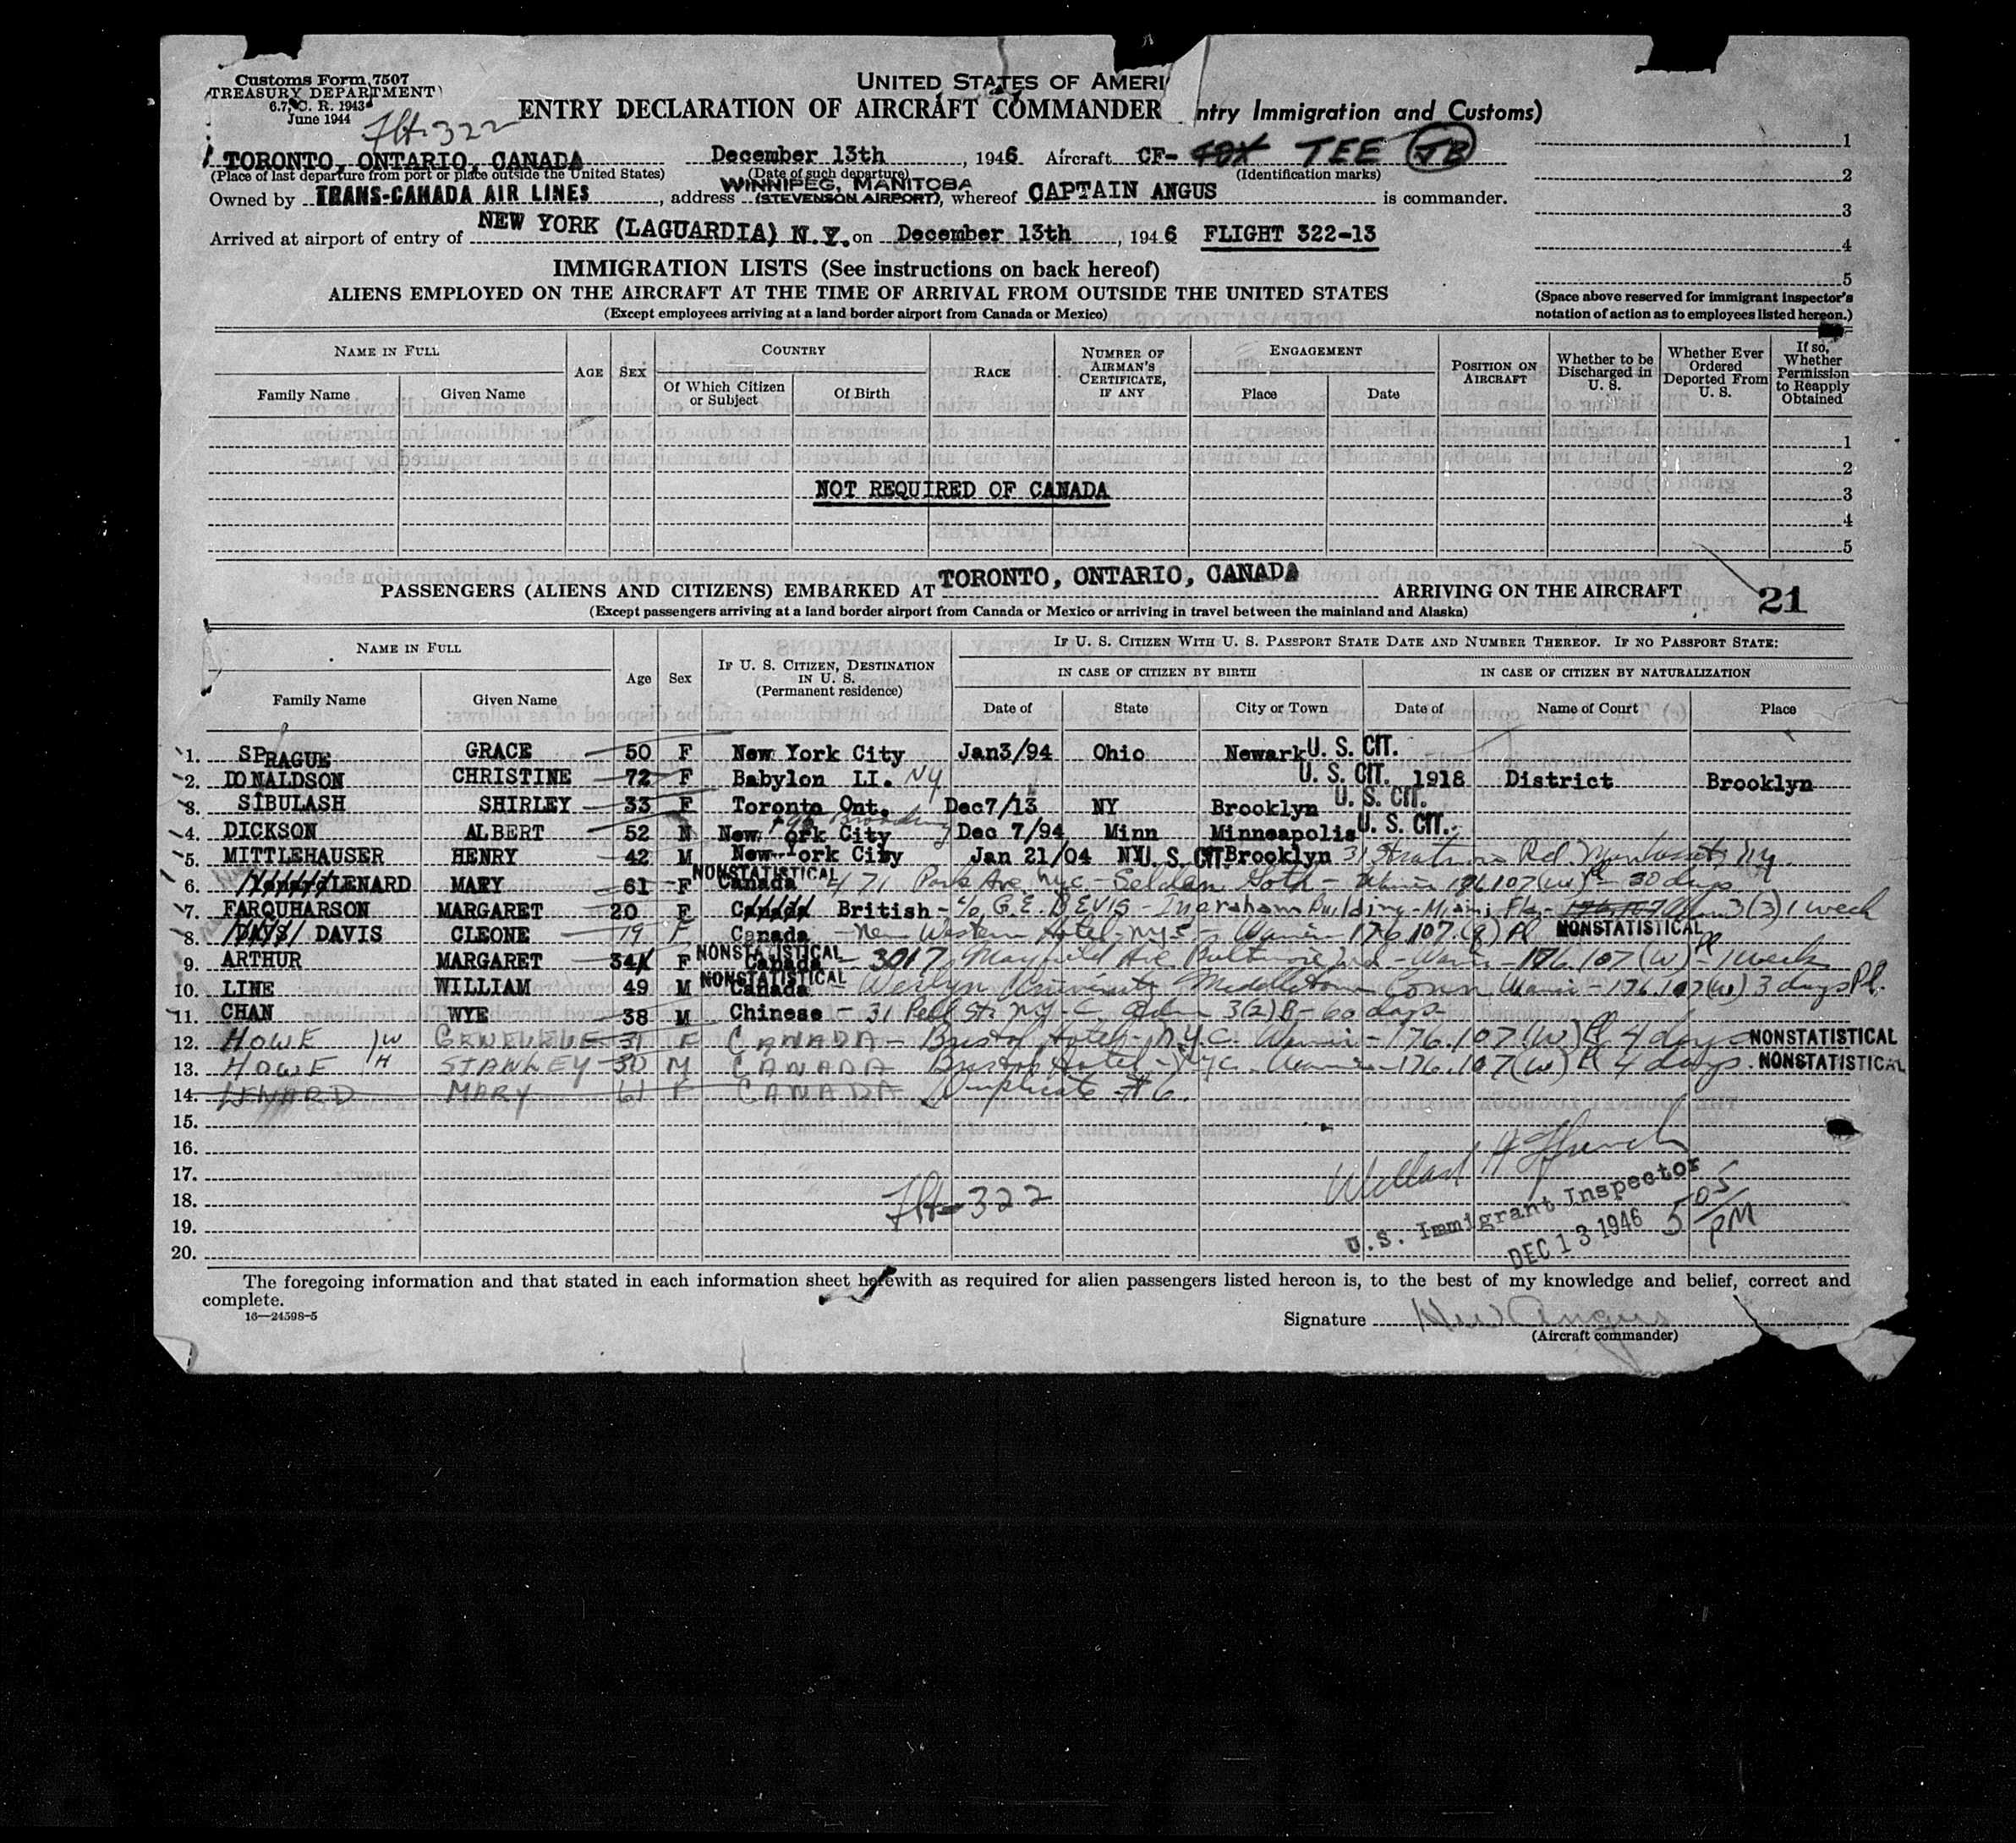 Customs Form 7507
TREASURY DEPARTMENT
6.7, C. R. 1943
June 1944
Flt 322
UNITED STATES OF AMERI
ENTRY DECLARATION OF AIRCRAFT COMMANDER ntry Immigration and Customs)
TORONTO, ONTARIO, CANADA December 13th, 1946 Aircraft CF- TEE JB
(Place of last departure from port or place outside the United States) (Date of such departure) (Identification marks)
Owned by TRANS-CANADA AIR LINES, address WINNIPEG, MANITOBA (STEVENSON AIRPORT), whereof CAPTAIN ANGUS is commander.
Arrived at airport of entry of NEW YORK (LAGUARDIA) N.Y. on December 13th, 1946 FLIGHT 322-13
1
2
3
4
5
(Space above reserved for immigrant inspector's notation of action as to employees listed hereon.)
IMMIGRATION LISTS (See instructions on back hereof)
ALIENS EMPLOYED ON THE AIRCRAFT AT THE TIME OF ARRIVAL FROM OUTSIDE THE UNITED STATES
(Except employees arriving at a land border airport from Canada or Mexico)
NAME IN FULL
Family Name Given Name
AGE SEX
COUNTRY
Of Which Citizen or Subject Of Birth
RACE
NUMBER OF AIRMAN'S CERTIFICATE, IF ANY
ENGAGEMENT
Place Date
POSITION ON AIRCRAFT
Whether to be Discharged in U. S.
Whether Ever Ordered Deported From U. S.
If so, Whether Permission to Reapply Obtained
1
2
NOT REQUIRED OF CANADA 3
4
5
PASSENGERS (ALIENS AND CITIZENS) EMBARKED AT TORONTO, ONTARIO, CANADA ARRIVING ON THE AIRCRAFT 21
(Except passengers arriving at a land border airport from Canada or Mexico or arriving in travel between the mainland and Alaska)
NAME IN FULL
Family Name Given Name
Age Sex
IF U. S. CITIZEN, DESTINATION IN U. S.
(Permanent residence)
IF U. S. CITIZEN WITH U. S. PASSPORT STATE DATE AND NUMBER THEREOF. IF NO PASSPORT STATE:
IN CASE OF CITIZEN BY BIRTH IN CASE OF CITIZEN BY NATURALIZATION
Date of State City or Town Date of Name of Court Place
1. SPRAGUE GRACE 50 F New York City Jan3/94 Ohio Newark U. S. CIT.
2. DONALDSON CHRISTINE 72 F Babylon LI. NY U. S. CIT. 1918 District Brooklyn
3. SIBULASH SHIRLEY 33 F Toronto Ont. Dec7/13 NY Brooklyn U. S. CIT.
4. DICKSON ALBERT 52 M New York City Dec 7/94 Minn Minneapolis U. S. CIT.
5. MITTLEHAUSER HENRY 42 M New York City Jan 21/04 NY U. S. CIT. Brooklyn 31 Rd. NY
6. LENARD MARY 61 F NONSTATISTICAL Canada 471 Park Ave NYC - Selden Goth - 176.107(W) Pl - 30 days
7. FARQUHARSON MARGARET 20 F Canada British - c/o G.E. BEVIS - Ingraham Building - Miami Fla - 176.107 3(3) 1 week
8. DAVIS CLEONE 19 F Canada - New Western Hotel - NYC - 176.107 Pl NONSTATISTICAL
9. ARTHUR MARGARET 34 F NONSTATISTICAL Canada - 3017 Mayfield Ave Baltimore Md - 176.107(W) Pl - 1 week
10. LINE WILLIAM 49 M NONSTATISTICAL Canada - University Middletown Conn - 176.107(W) 3 days Pl.
11. CHAN WYE 38 M Chinese - 31 Pell St NYC. Adm 3(2)B - 60 days
12. HOWE W GENEVIEVE 31 F CANADA - Bristol Hotel - N.Y.C. - 176.107(W) Pl 4 days NONSTATISTICAL
13. HOWE H STANLEY 30 M CANADA Bristol Hotel - NYC. - 176.107(W) Pl 4 days. NONSTATISTICAL
14. LENARD MARY 61 F CANADA Duplicate #6.
15.
16.
17.
18. Flt-322
19.
20.
U.S. Immigrant Inspector
DEC 13 1946
5 05 PM
The foregoing information and that stated in each information sheet herewith as required for alien passengers listed hereon is, to the best of my knowledge and belief, correct and
complete.
16—24598-5
Signature Angus
(Aircraft commander)